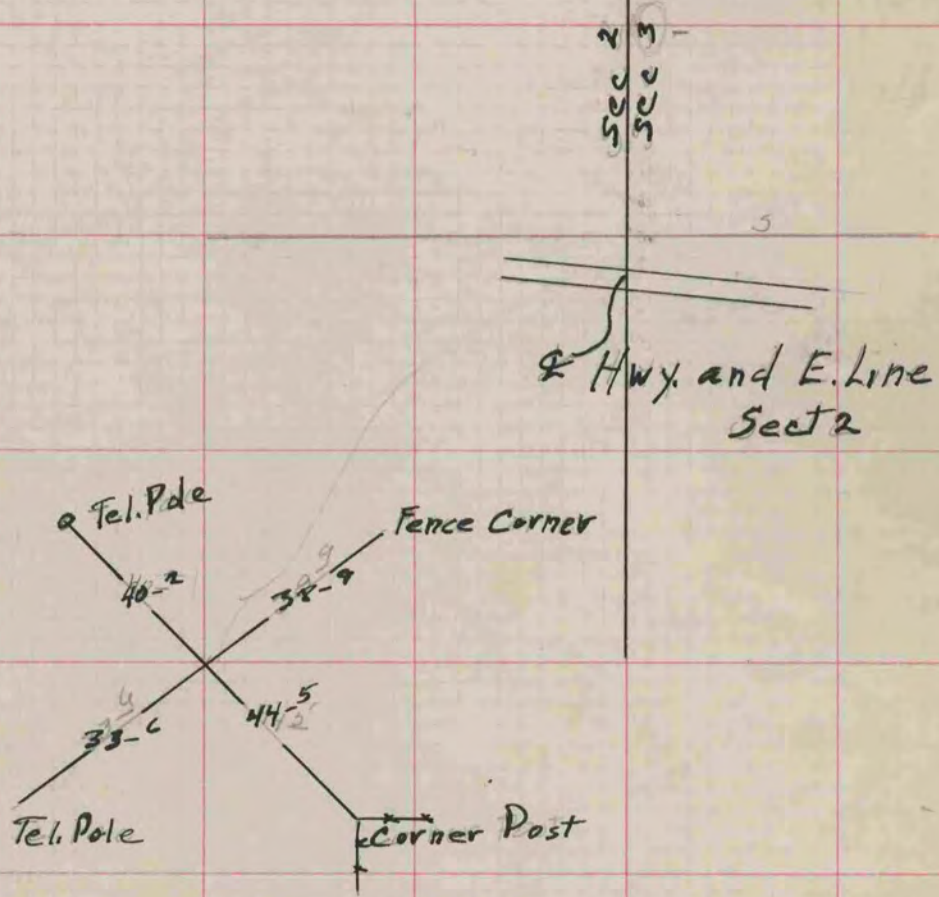 Sec 2
Sec 3
℄ Hwy. and E. Line
Sect 2
Tel. Pole
Fence Corner
40-2
38-9
44-5
33-6
Tel. Pole
Corner Post